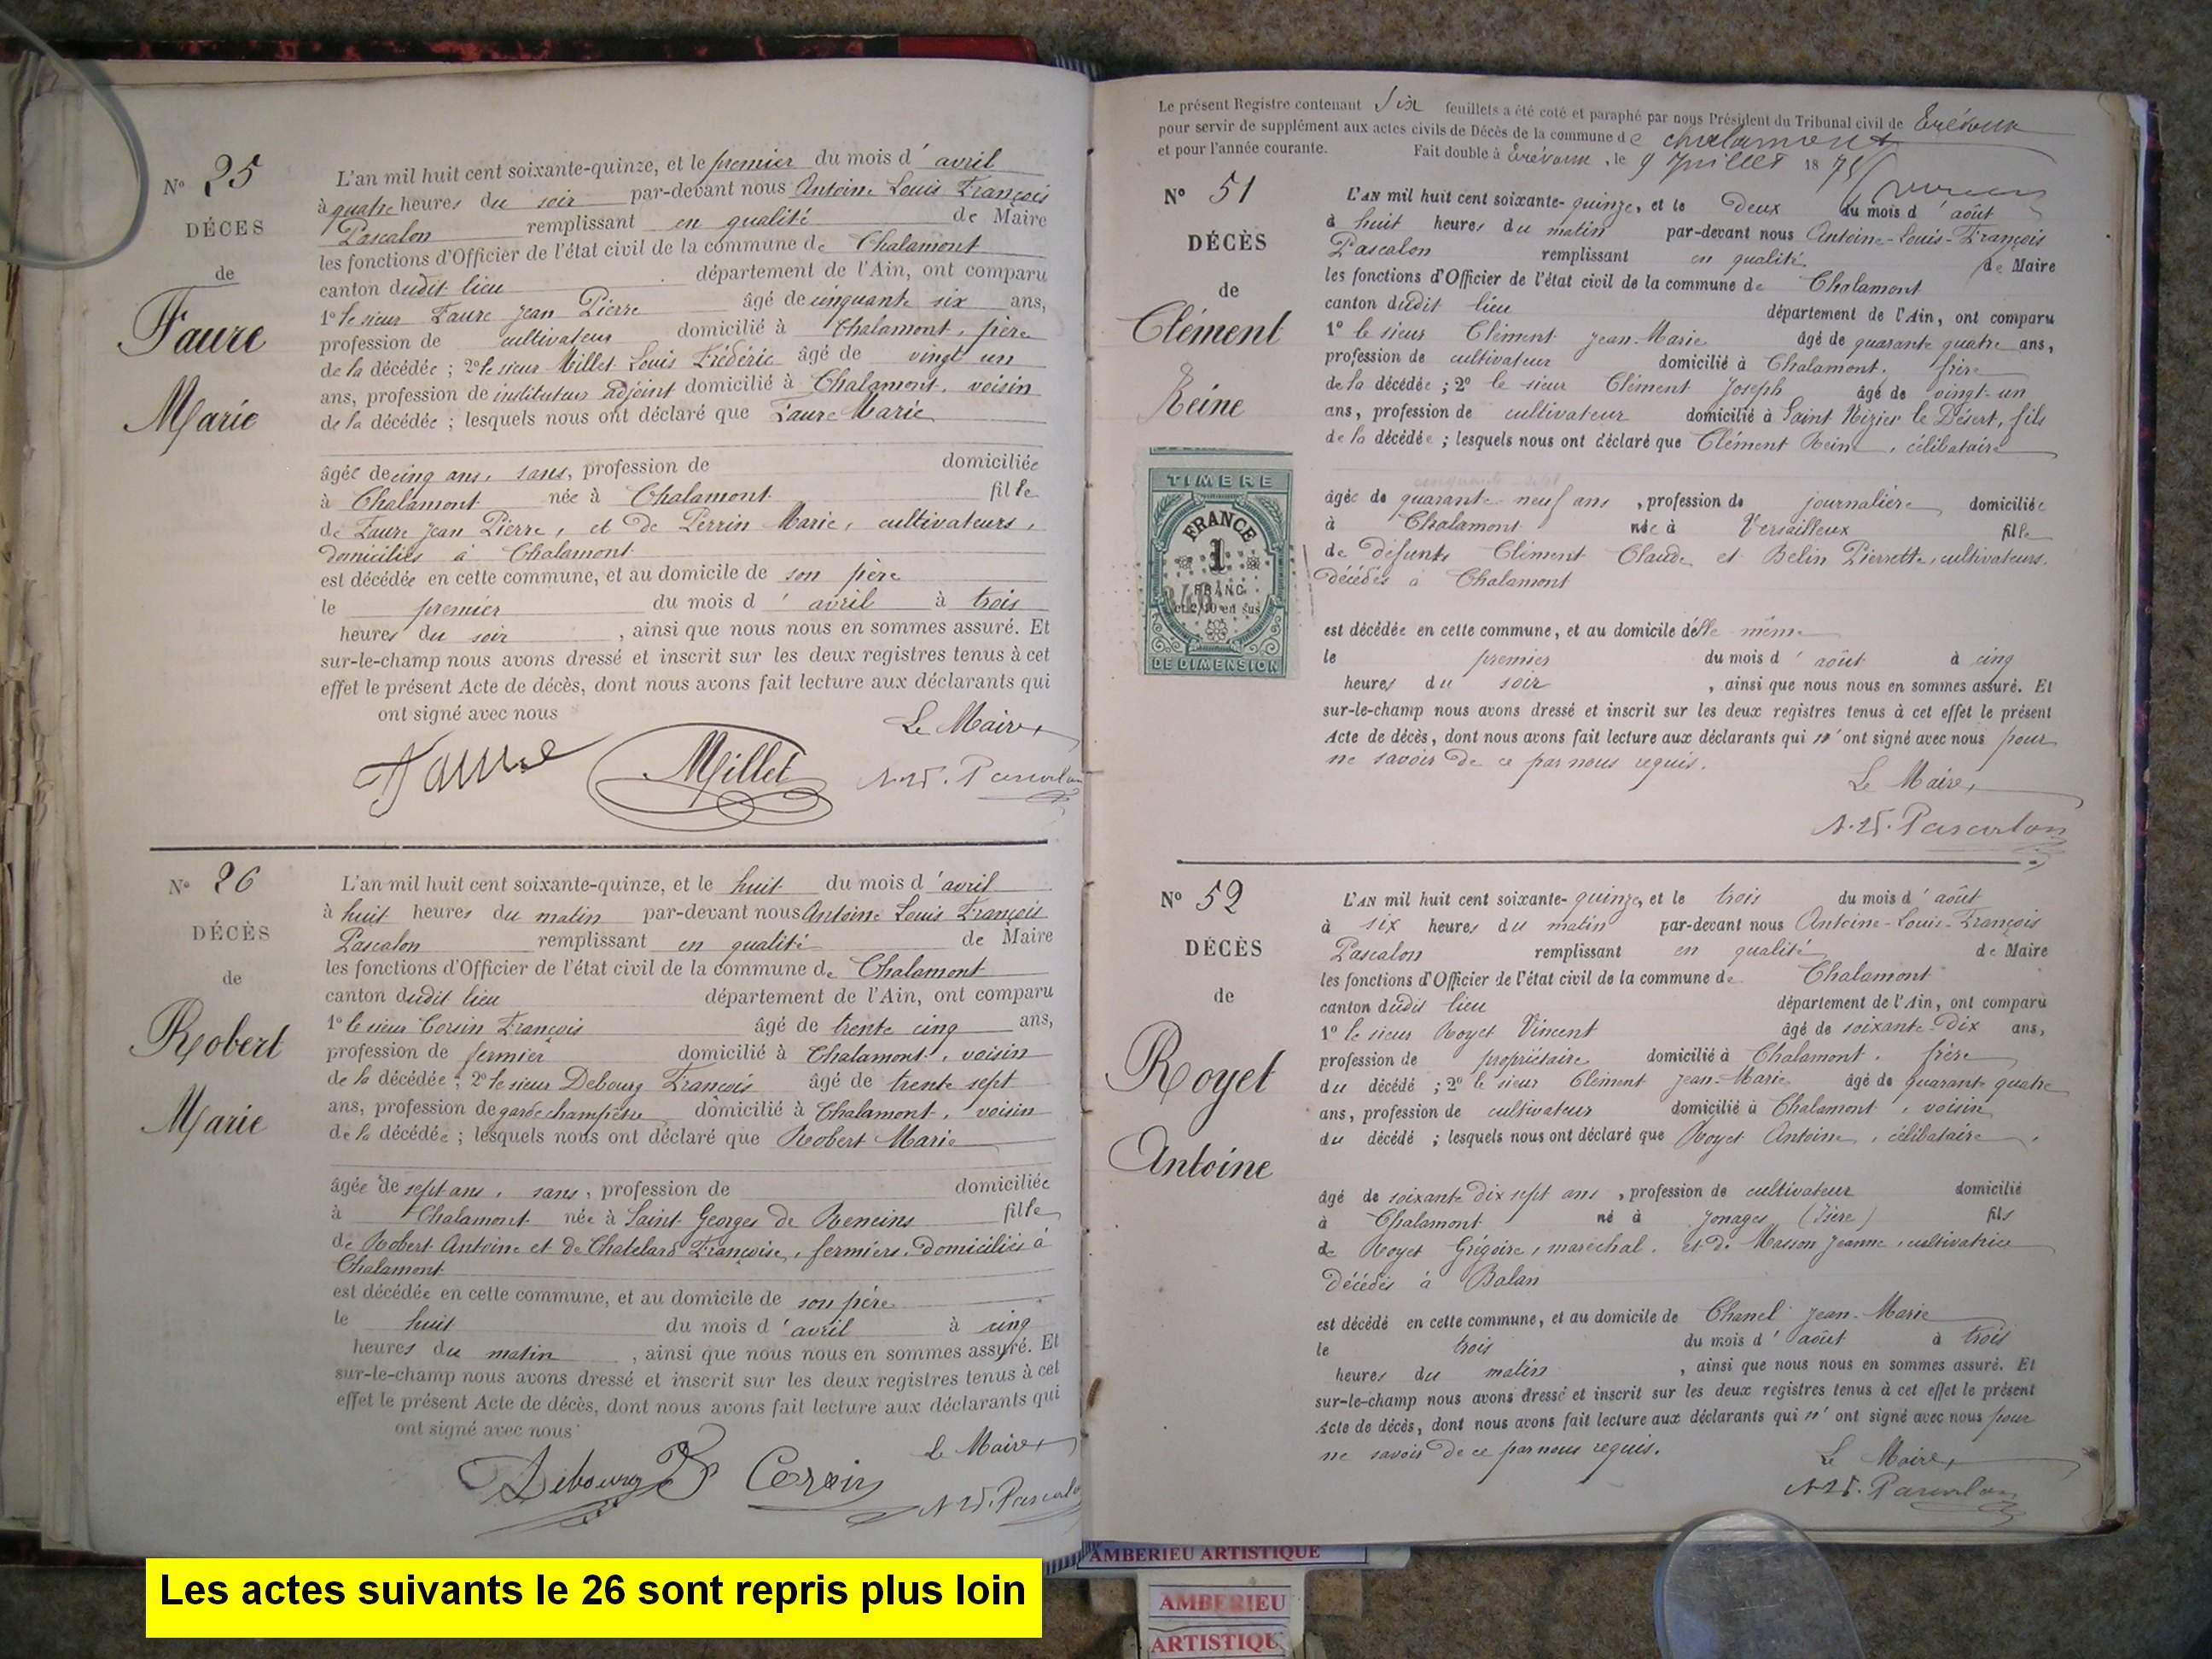 N° 25
DÉCES
de
Faure
Marie
L'an mil huit cent soixante-quinze, et le premier du mois d'avril
à quatre heures du soir par-devant nous Antoine Louis François
Pascalon remplissant en qualité de Maire
les fonctions d'Officier de l'état civil de la commune de Chalamont
canton dudit lieu département de l'Ain, ont comparu
1° le sieur Faure Jean Pierre âgé de cinquante six ans,
profession de cultivateur domicilié à Chalamont, père
de la décédée ; 2° le sieur Millet Louis Frédéric âgé de vingt un
ans, profession de instituteur adjoint domicilié à Chalamont, voisin
de la décédée ; lesquels nous ont déclaré que Faure Marie
âgée de cinq ans, sans, profession de domiciliée
à Chalamont née à Chalamont fille
de Faure Jean Pierre, et de Perrin Marie, cultivateurs,
domiciliés à Chalamont
est décédée en cette commune, et au domicile de son père
le premier du mois d'avril à trois
heures du soir, ainsi que nous nous en sommes assuré. Et
sur-le-champ nous avons dressé et inscrit sur les deux registres tenus à cet
effet le présent Acte de décès, dont nous avons fait lecture aux déclarants qui
ont signé avec nous
Le Maire
Faure Millet A. L. F. Pascalon
N° 26
DÉCÈS
de
Robert
Marie
L'an mil huit cent soixante-quinze, et le huit du mois d'avril
à huit heures du matin par-devant nous Antoine Louis François
Pascalon remplissant en qualité de Maire
les fonctions d'Officier de l'état civil de la commune de Chalamont
canton dudit lieu département de l'Ain, ont comparu
1° le sieur Corsin François âgé de trente cinq ans,
profession de fermier domicilié à Chalamont, voisin
de la décédée ; 2° le sieur Debourg François âgé de trente sept
ans, profession de garde champêtre domicilié à Chalamont, voisin
de la décédée ; lesquels nous ont déclaré que Robert Marie
âgée de sept ans, sans, profession de domiciliée
à Chalamont née à Saint Georges de Reneins fille
de Robert Antoine et de Chatelard Françoise, fermiers, domiciliés à
Chalamont
est décédée en cette commune, et au domicile de son père
le huit du mois d'avril à cinq
heures du matin, ainsi que nous nous en sommes assuré. Et
sur-le-champ nous avons dressé et inscrit sur les deux registres tenus à cet
effet le présent Acte de décès, dont nous avons fait lecture aux déclarants qui
ont signé avec nous
Le Maire
Debourg Corsin A. L. F. Pascalon
Les actes suivants le 26 sont repris plus loin
Le présent Registre contenant Six feuillets a été coté et paraphé par nous Président du Tribunal civil de Trévoux
pour servir de supplément aux actes civils de Décès de la commune de chalamont
et pour l'année courante. Fait double à Trévoux, le 9 Juillet 1875
N° 51
DÉCÈS
de
Clément
Reine
TIMBRE
FRANCE
1
FRANC
et 2/10 en sus
DE DIMENSION
L'AN mil huit cent soixante-quinze, et le deux du mois d'août
à huit heures du matin par-devant nous Antoine-Louis-François
Pascalon remplissant en qualité de Maire
les fonctions d'Officier de l'état civil de la commune de Chalamont
canton dudit lieu département de l'Ain, ont comparu
1° le sieur Clément Jean-Marie âgé de quarante quatre ans,
profession de cultivateur domicilié à Chalamont, frère
de la décédée ; 2° le sieur Clément Joseph âgé de vingt-un
ans, profession de cultivateur domicilié à Saint Nizier le Désert, fils
de la décédée ; lesquels nous ont déclaré que Clément Reine, célibataire
âgée de quarante neuf ans, profession de journalière domiciliée
à Chalamont née à Versailleux fille
de défunts Clément Claude et Belin Pierrette, cultivateurs,
décédés à Chalamont
est décédée en cette commune, et au domicile d'elle même
le premier du mois d'août à cinq
heures du soir, ainsi que nous nous en sommes assuré. Et
sur-le-champ nous avons dressé et inscrit sur les deux registres tenus à cet effet le présent
Acte de décès, dont nous avons fait lecture aux déclarants qui n'ont signé avec nous pour
ne savoir de ce par nous requis.
Le Maire,
A. L. F. Pascalon
N° 52
DÉCÈS
de
Royet
Antoine
L'AN mil huit cent soixante-quinze, et le trois du mois d'août
à six heures du matin par-devant nous Antoine-Louis-François
Pascalon remplissant en qualité de Maire
les fonctions d'Officier de l'état civil de la commune de Chalamont
canton dudit lieu département de l'Ain, ont comparu
1° le sieur Royet Vincent âgé de soixante-dix ans,
profession de propriétaire domicilié à Chalamont, frère
du décédé ; 2° le sieur Clément Jean-Marie âgé de quarante quatre
ans, profession de cultivateur domicilié à Chalamont, voisin
du décédé ; lesquels nous ont déclaré que Royet Antoine, célibataire,
âgé de soixante dix sept ans, profession de cultivateur domicilié
à Chalamont né à Jonages (Isère) fils
de Royet Grégoire, maréchal, et de Masson Jeanne, cultivatrice
décédés à Balan
est décédé en cette commune, et au domicile de Chanel Jean-Marie
le trois du mois d'août à trois
heures du matin, ainsi que nous nous en sommes assuré. Et
sur-le-champ nous avons dressé et inscrit sur les deux registres tenus à cet effet le présent
Acte de décès, dont nous avons fait lecture aux déclarants qui n'ont signé avec nous pour
ne savoir de ce par nous requis.
Le Maire
A. L. F. Pascalon
AMBERIEU ARTISTIQUE
AMBERIEU
ARTISTIQU